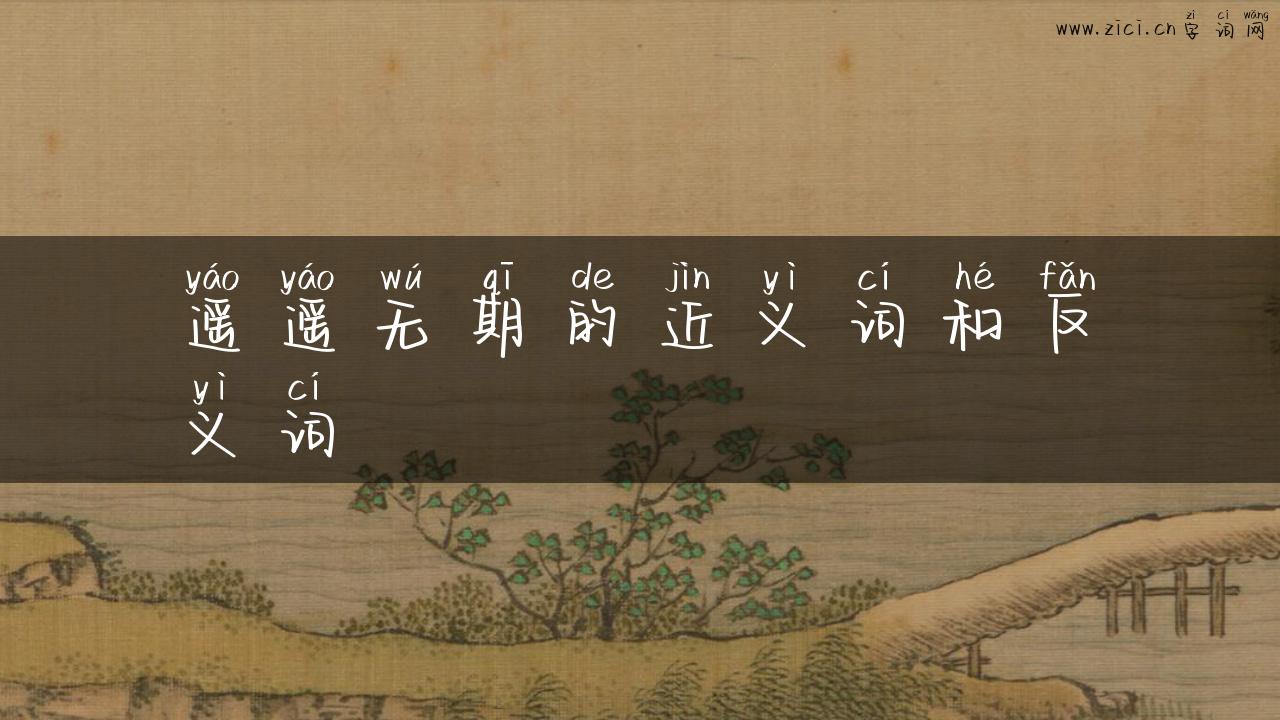 zì cí wǎng
www.zici.cn 字 词 网
yáo yáo wú qī de jìn yì cí hé fǎn
遥 遥 无 期 的 近 义 词 和 反
yì cí
义 词